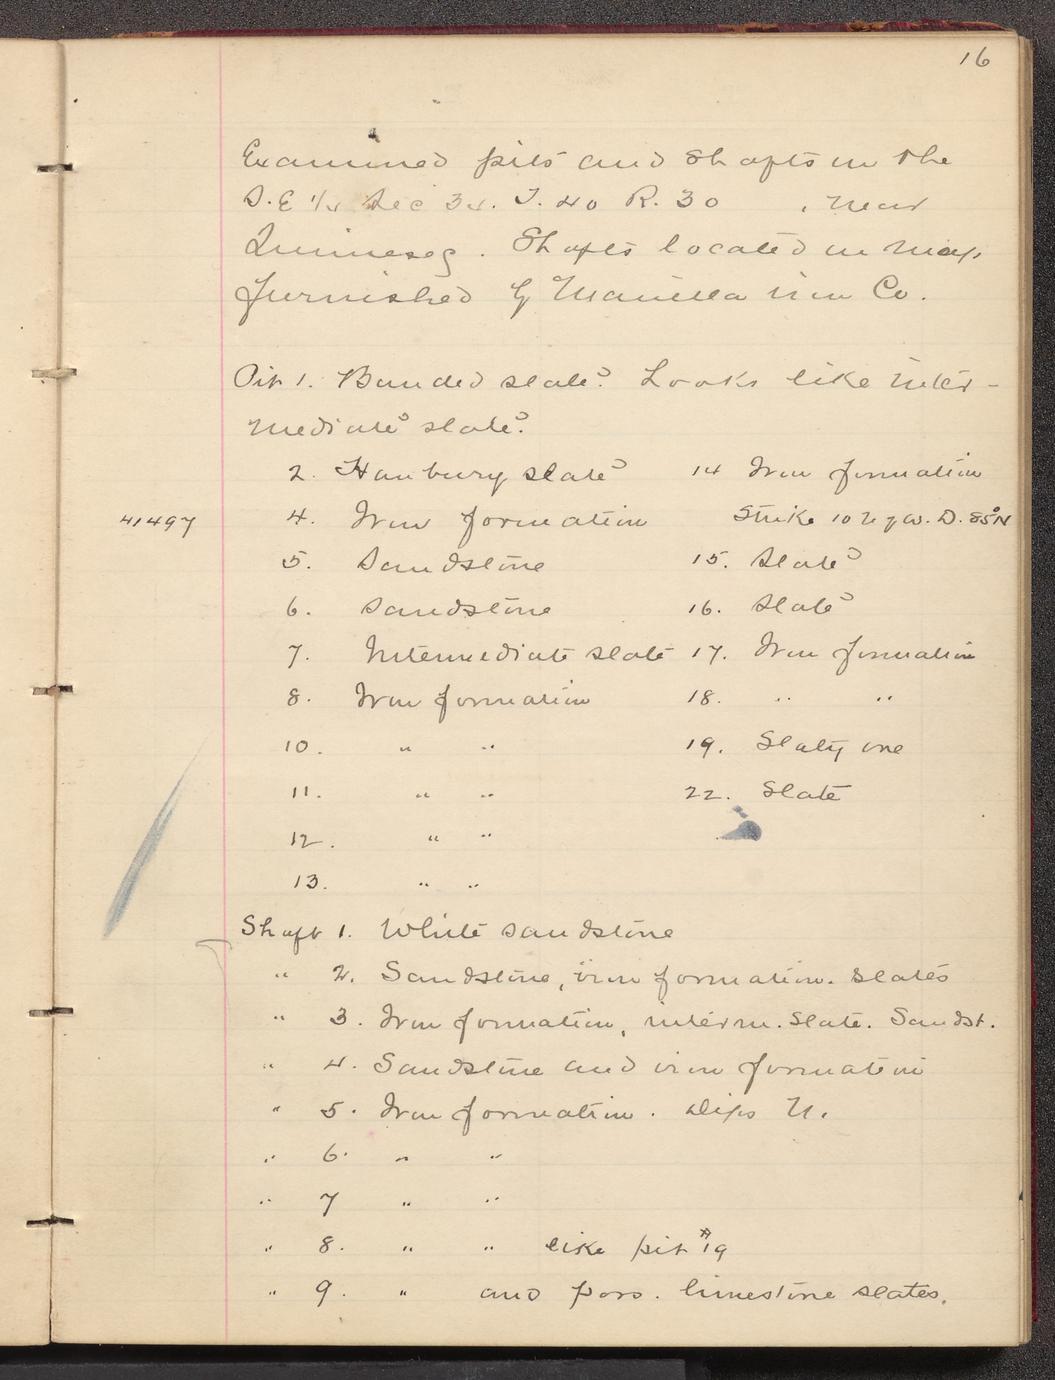 16
Examined pits and shafts in the
S.E 1/4 Sec 34. T. 40 R. 30 , near
Quinnesec. Shafts located on map
furnished by Manilla iron Co.
Pit 1. Banded slate. Looks like inter-
mediate slate.
2. Hanbury slate
41497 4. Iron formation
5. Sandstone
6. Sandstone
7. Intermediate slate
8. Iron formation
10. " "
11. " "
12. " "
13. " "
14 Iron formation
Strike 10 N of W. D. 85° N
15. Slate
16. Slate
17. Iron formation
18. " "
19. Slaty ore
22. Slate
Shaft 1. White sandstone
" 2. Sandstone, iron formation. slates
" 3. Iron formation, interm. slate. Sandst.
" 4. Sandstone and iron formation
" 5. Iron formation. Dips N.
" 6. " "
" 7 " "
" 8. " " like pit #19
" 9. " and poss. limestone slates.